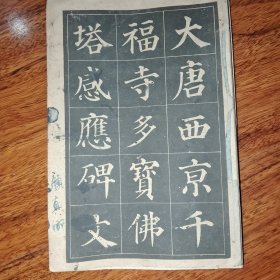 大唐西亰千
福寺多寶佛
塔感應碑文